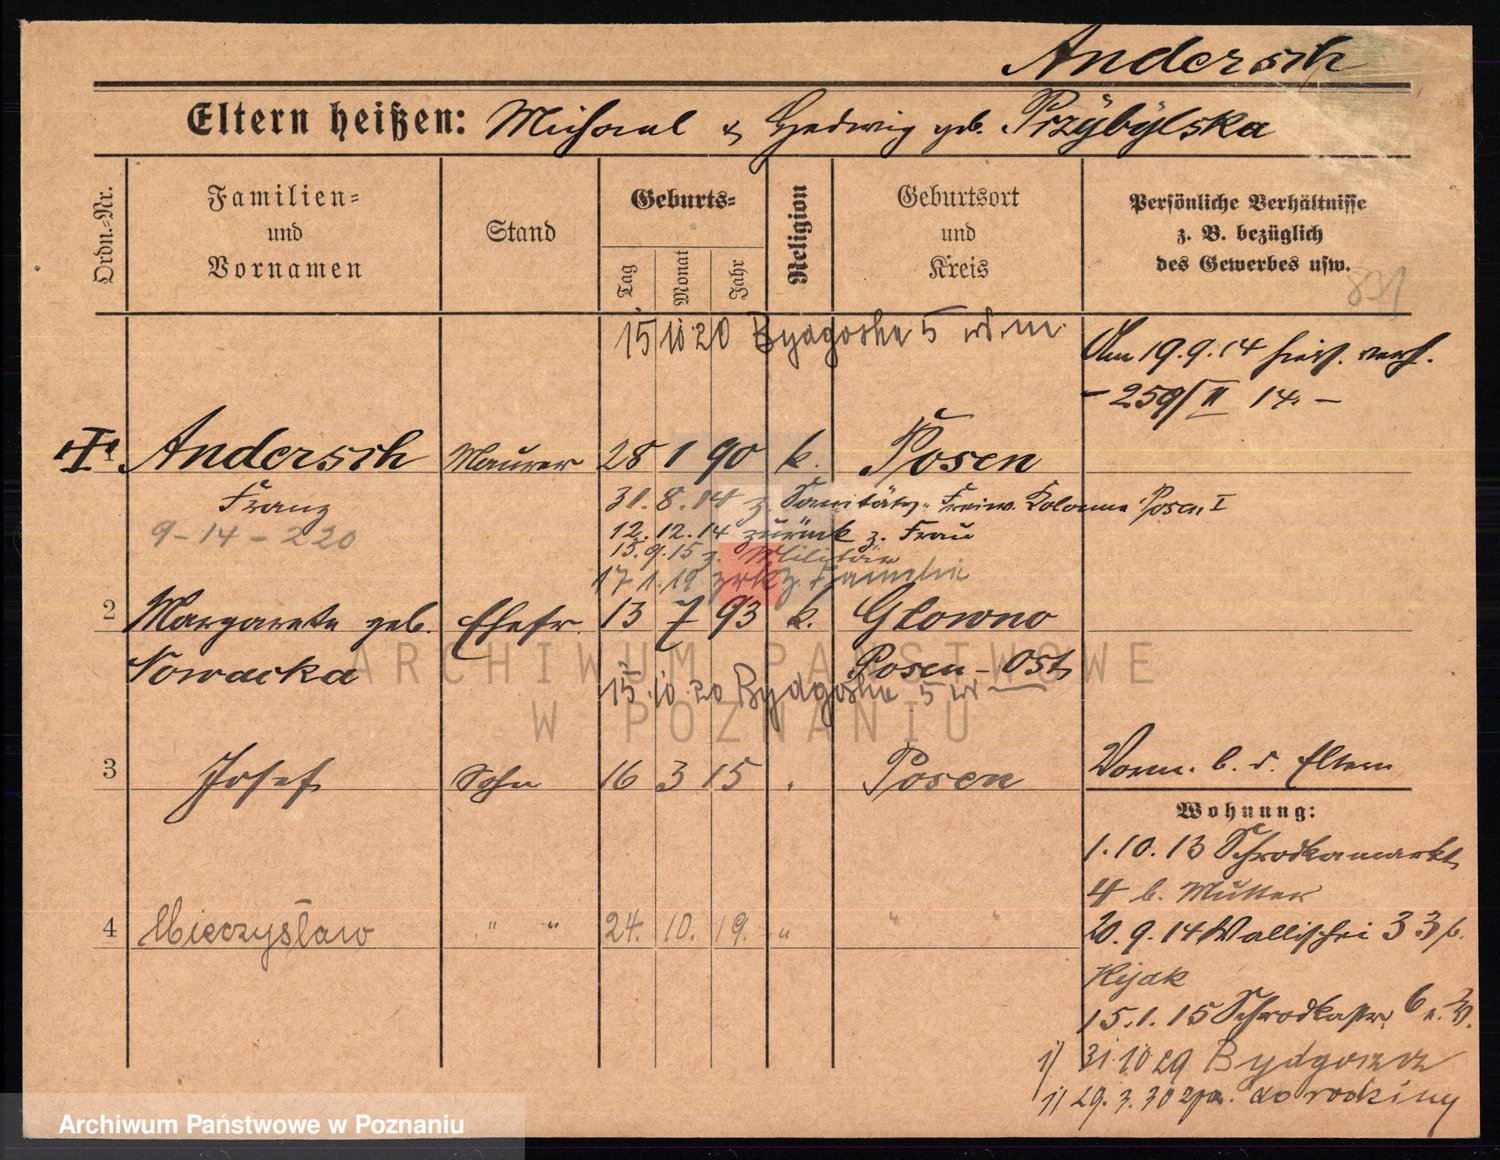 Andersch
Eltern heißen: Michael & Hedwig geb. Przybylska
Ordn.-Nr.
Familien-
und
Vornamen
Stand
Geburts-
Tag
Monat
Jahr
Religion
Geburtsort
und
Kreis
Persönliche Verhältnisse
z. B. bezüglich
des Gewerbes usw.
831
15 10 20 Bydgoska 5 w. m.
Am 19.9.14 hier verh.
- 259/II 14. -
1 Andersch Maurer 28 1 90 k. Posen
Franz
9-14-220
31. 8. 14 z. Sanitäts- Freiw. Kolonne Posen I
12. 12. 14 zurück z. Frau
15. 9. 15 z. Militär
17 1. 19 zrk z. Familie
2 Margarete geb. Ehefr. 13 7 93 k. Głowno
Nowacka Posen - Ost
15. 10. 20 Bydgoska 5 w
3 Josef Sohn 16 3 15 " Posen
Vorm. b. d. Eltern
Wohnung:
1. 10. 13 Schrodkamarkt
4 b. Mutter
4 Mieczysław " " 24. 10. 19. " " "
20. 9. 14 Wallischei 33 b.
Kijak
15. 1. 15 Schrodkastr. 6
1) 31 10 29 Bydgoszcz
1) 29. 3. 30 do rodziny
ARCHIWUM PAŃSTWOWE
W POZNANIU
Archiwum Państwowe w Poznaniu